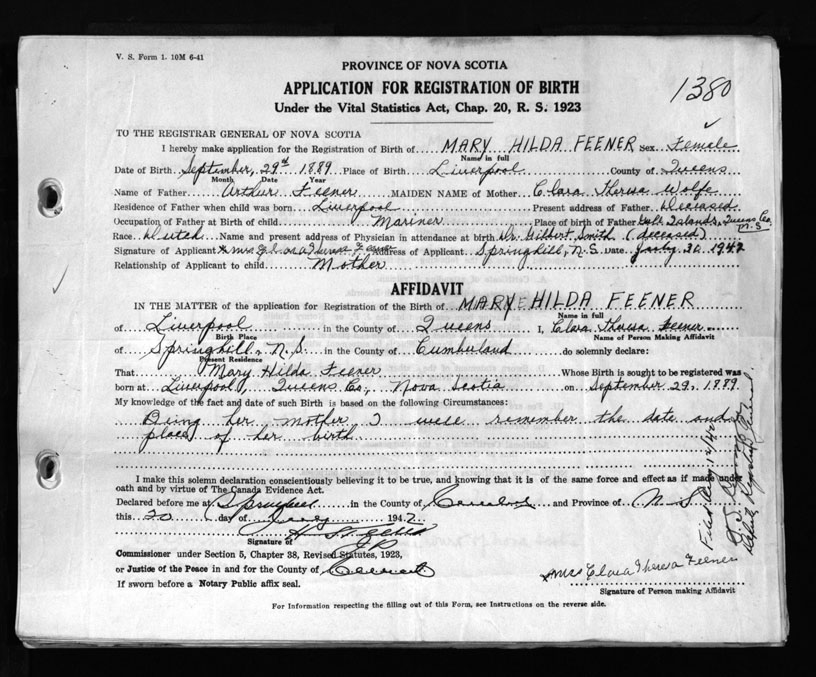 V. S. Form 1. 10M 6-41
PROVINCE OF NOVA SCOTIA
APPLICATION FOR REGISTRATION OF BIRTH
Under the Vital Statistics Act, Chap. 20, R. S. 1923
1380
TO THE REGISTRAR GENERAL OF NOVA SCOTIA
I hereby make application for the Registration of Birth of MARY HILDA FEENER Sex Female
Name in full
Date of Birth September, 29th 1889 Place of Birth Liverpool County of Queens
Month Date Year
Name of Father Arthur Feener MAIDEN NAME of Mother Clara Theresa Wolfe
Residence of Father when child was born Liverpool Present address of Father Deceased
Occupation of Father at Birth of child Mariner Place of birth of Father Islands, Queens Co., N.S.
Race Dutch Name and present address of Physician in attendance at birth Dr. Gilbert Smith (deceased)
Signature of Applicant x Mrs Clara Theresa Feener Address of Applicant Springhill, N.S. Date 1942
Relationship of Applicant to child Mother
AFFIDAVIT
IN THE MATTER of the application for Registration of the Birth of MARY HILDA FEENER
Name in full
of Liverpool in the County of Queens I, Clara Theresa Feener
Birth Place Name of Person Making Affidavit
of Springhill, N.S. in the County of Cumberland do solemnly declare:
Present Residence
That Mary Hilda Feener Whose Birth is sought to be registered was
born at Liverpool, Queens Co., Nova Scotia on September 29, 1889
My knowledge of the fact and date of such Birth is based on the following Circumstances:
Being her mother I well remember the date and
place of her birth
I make this solemn declaration conscientiously believing it to be true, and knowing that it is of the same force and effect as if made under
oath and by virtue of The Canada Evidence Act.
Declared before me at Springhill in the County of and Province of N S
this day of 1942
Signature of
J P
Commissioner under Section 5, Chapter 38, Revised Statutes, 1923,
or Justice of the Peace in and for the County of
x Mrs Clara Theresa Feener
If sworn before a Notary Public affix seal.
Signature of Person making Affidavit
For Information respecting the filling out of this Form, see Instructions on the reverse side.